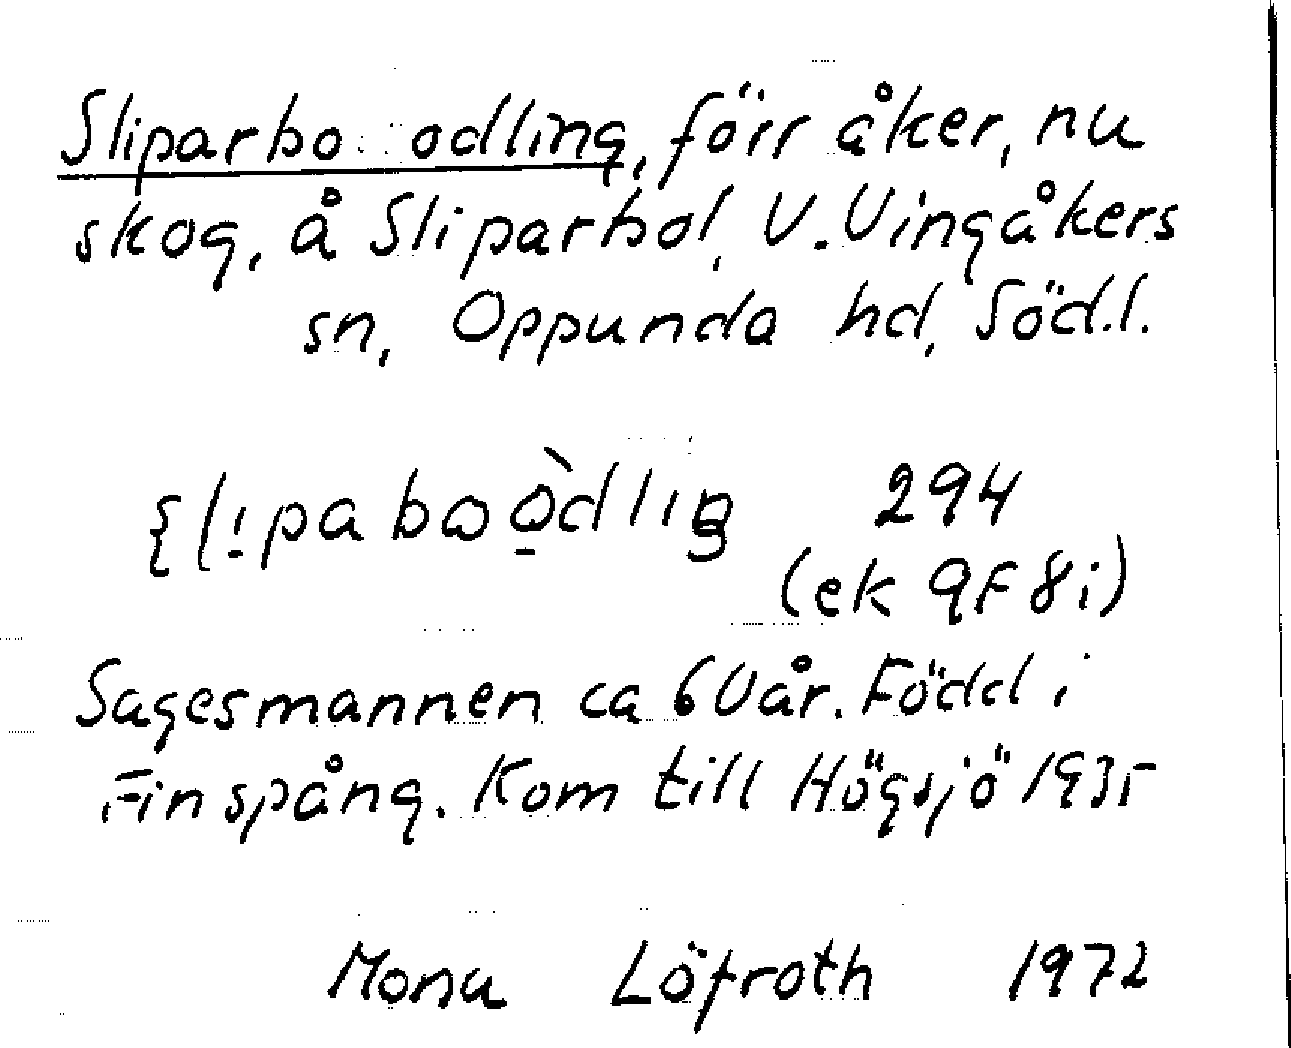 Sliparbo odling, förr åker, nu
skog, å Sliparbol, V. Vingåkers
sn, Oppunda hd, Söd.l.
294
(ek 9F 8i)
Sagesmannen ca 60 år. Född i
Finspång. Kom till Högsjö 1935
Mona Löfroth 1972